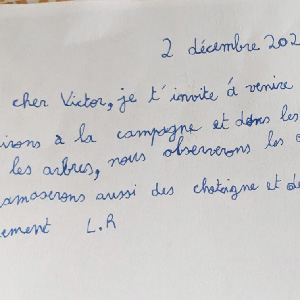 2 décembre 202
cher Victor, je t'invite á venire
irons a la campagne et dans les
les arbres, nous observerons les o
amaserons aussi des chataigne et de
ement L.R